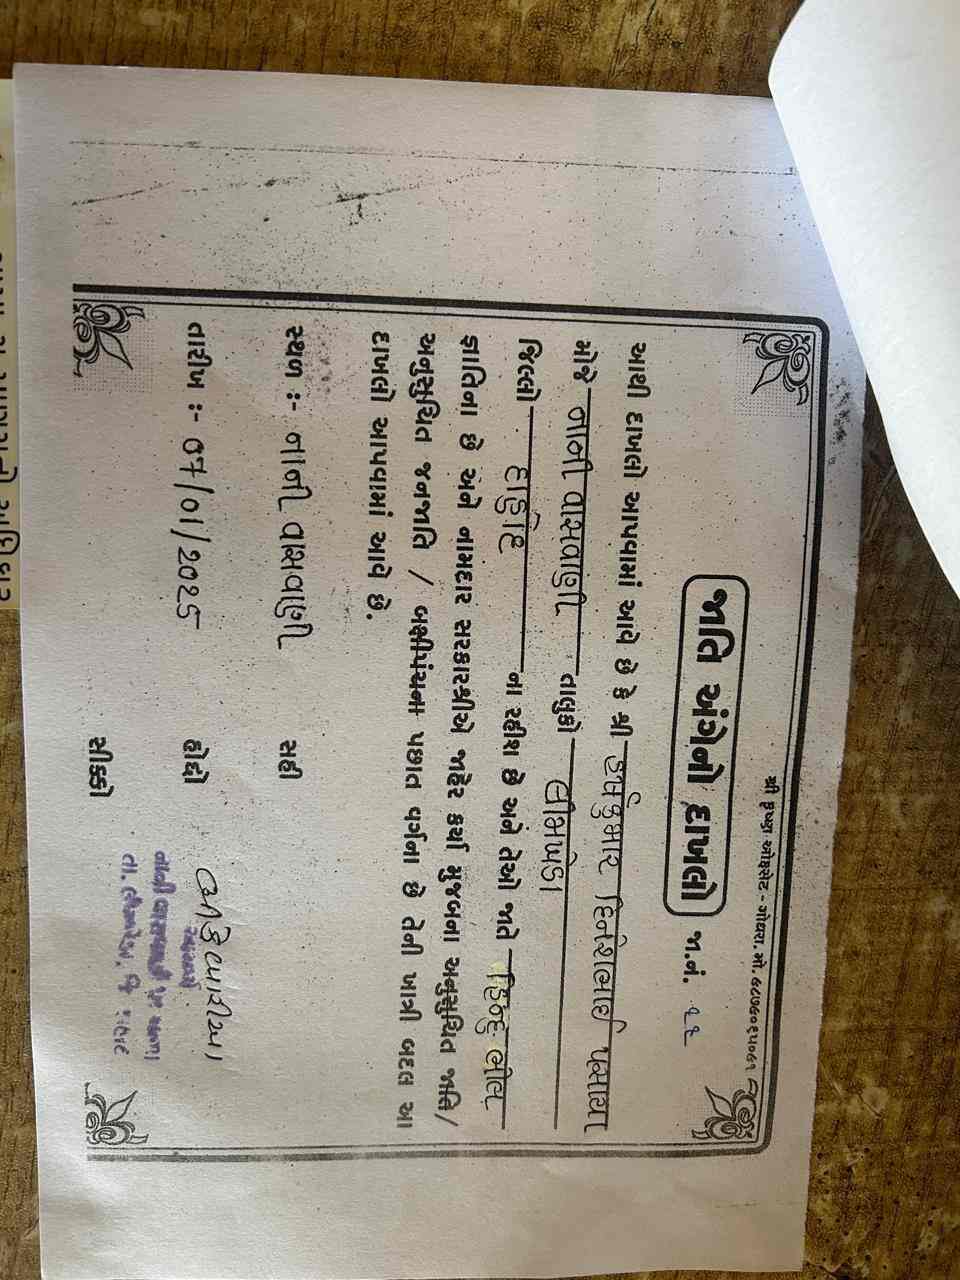 શ્રી કૃષ્ણા ઓફસેટ - ગોધરા. મો. ૯૮૭૭૦૬૫૦૯૧
જાતિ અંગેનો દાખલો જા.નં. ૨૨
આથી દાખલો આપવામાં આવે છે કે શ્રી હર્ષકુમાર દિનેશભાઈ પસાયા
મોજે નાની વાસવાણી તાલુકો લીમખેડા
જિલ્લો દાહોદ ના રહીશ છે અને તેઓ જાતે હિન્દુ ભીલ
જ્ઞાતિના છે અને નામદાર સરકારશ્રીએ જાહેર કર્યા મુજબના અનુસુચિત જાતિ/
અનુસુચિત જનજાતિ / બક્ષીપંચના પછાત વર્ગના છે તેની ખાત્રી બદલ આ
દાખલો આપવામાં આવે છે.
સ્થળ :- નાની વાસવાણી સહી
તારીખ :- 07/01/2025 હોદ્દો
સીક્કો